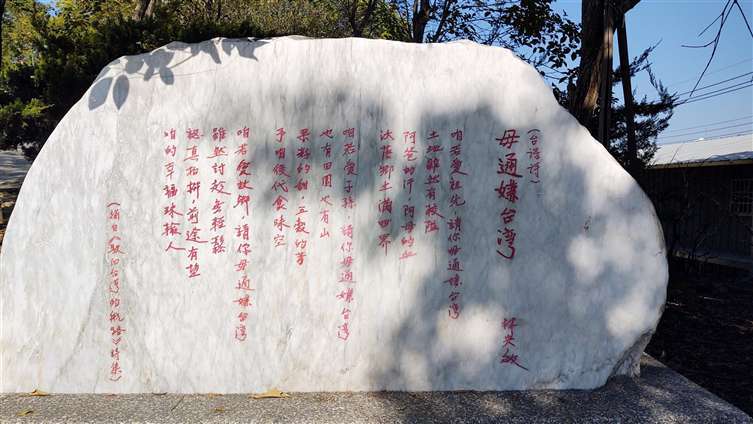 (台語詩)
毋通嫌台灣
林央敏
咱若愛祖先，請你毋通嫌台灣
土地雖然有較隘
阿爸的汗，阿母的血
沃落鄉土滿四界
咱若愛子孫，請你毋通嫌台灣
也有田園也有山
果籽的甜，五穀的芳
予咱後代食昧空
咱若愛故鄉，請你毋通嫌台灣
雖然討趁無輕鬆
認真拍拚，前途有望
咱的幸福昧輸人
(摘自《駛向台灣的航路》詩集)